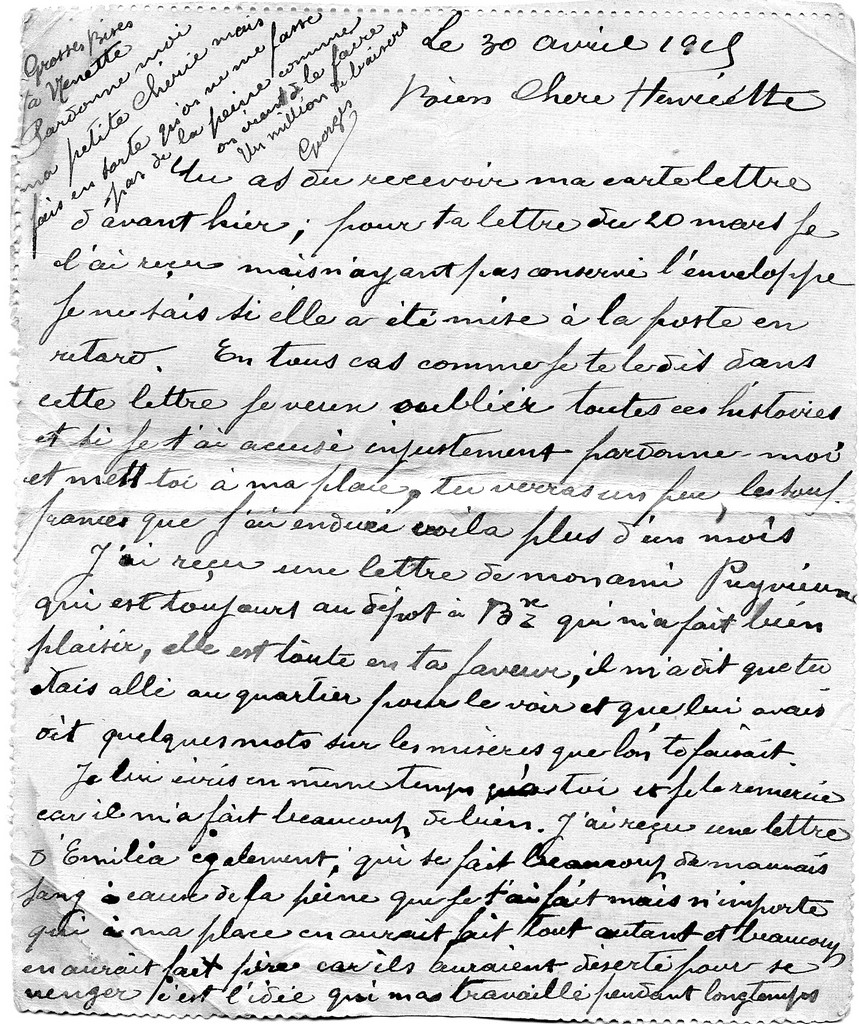 Grosses Bises
ta Nenette
Pardonne moi
ma petite Chérie mais
fais en sorte qu'on ne me fasse
pas de la peine comme
on vient de le faire
Un million de baisers
Georges
Le 30 avril 1915
Bien Chère Henriette
Tu as du recevoir ma carte lettre
d'avant hier ; pour ta lettre du 20 mars je
l'ai reçu mais n'ayant pas conservé l'enveloppe
je ne sais si elle a été mise à la poste en
retard. En tous cas comme je te le dis dans
cette lettre je veux oublier toutes ces histoires
et si je t'ai accusé injustement pardonne-moi
et mett toi à ma place, tu verras un peu, les souf-
frances que j'ai enduré voila plus d'un mois
J'ai reçu une lettre de mon ami
qui est toujours au dépôt à Bx qui m'a fait bien
plaisir, elle est toute en ta faveur, il m'a dit que tu
étais allé au quartier pour le voir et que lui avais
dit quelques mots sur les misères que l'on te faisait.
Je lui écris en même temps qu'à toi et je le remercie
car il m'a fait beaucoup de bien. J'ai reçu une lettre
d'Emilia également, qui se fait beaucoup de mauvais
sang à cause de la peine que je t'ai fait mais n'importe
qui à ma place en aurait fait tout autant et beaucoup
en aurait fait pire car ils auraient déserté pour se
venger c'est l'idée qui m'as travaillé pendant longtemps